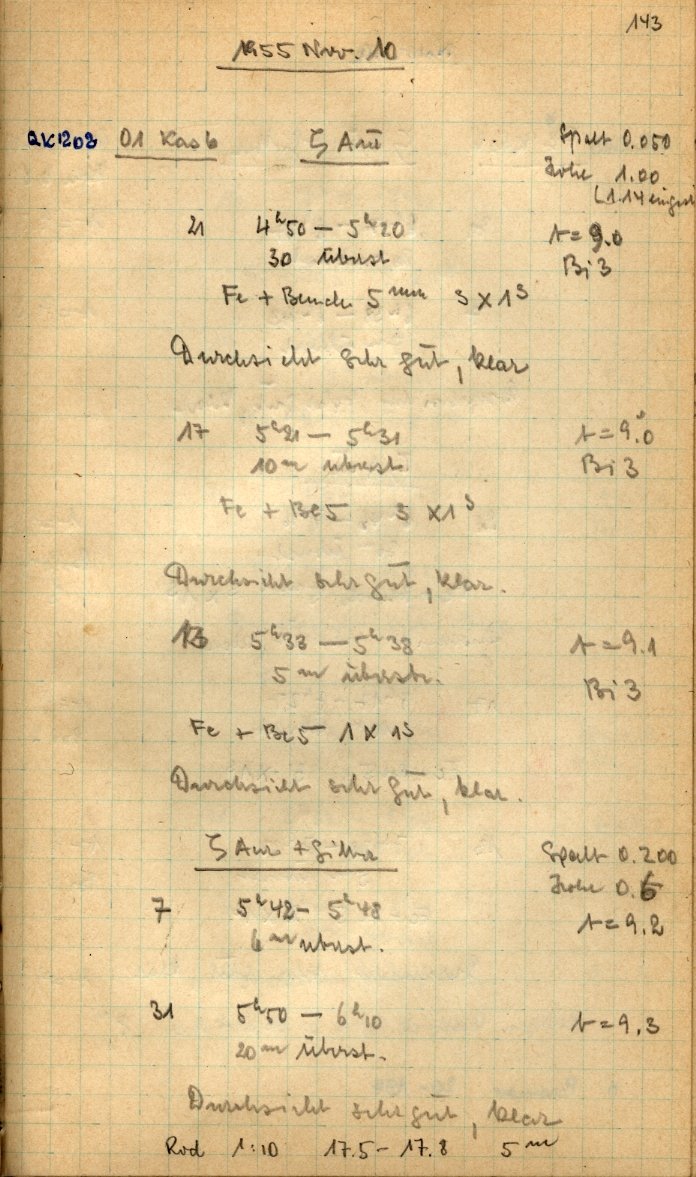 143
1955 Nov. 10
QK1202 01 Kas b ζ Aur Spalt 0.050
Höhe 1.00
(1.14 einge
21 4ʰ50 – 5ʰ20 t = 9.0
30 überst Bi 3
Fe + 5 3 × 1ˢ
Durchsicht sehr gut, klar
17 5ʰ21 – 5ʰ31 t = 9.0
10ᵐ überst. Bi 3
Fe + Be 5 3 × 1ˢ
Durchsicht sehr gut, klar.
13 5ʰ33 – 5ʰ38 t = 9.1
5ᵐ überstr. Bi 3
Fe + Be 5 1 × 1ˢ
Durchsicht sehr gut, klar.
ζ Aur + Gitter Spalt 0.200
Höhe 0.6
7 5ʰ42 – 5ʰ48 t = 9.2
6ᵐ überst.
31 5ʰ50 – 6ʰ10 t = 9.3
20ᵐ überst.
Durchsicht sehr gut, klar
Rod 1:10 17.5 – 17.8 5ᵐ